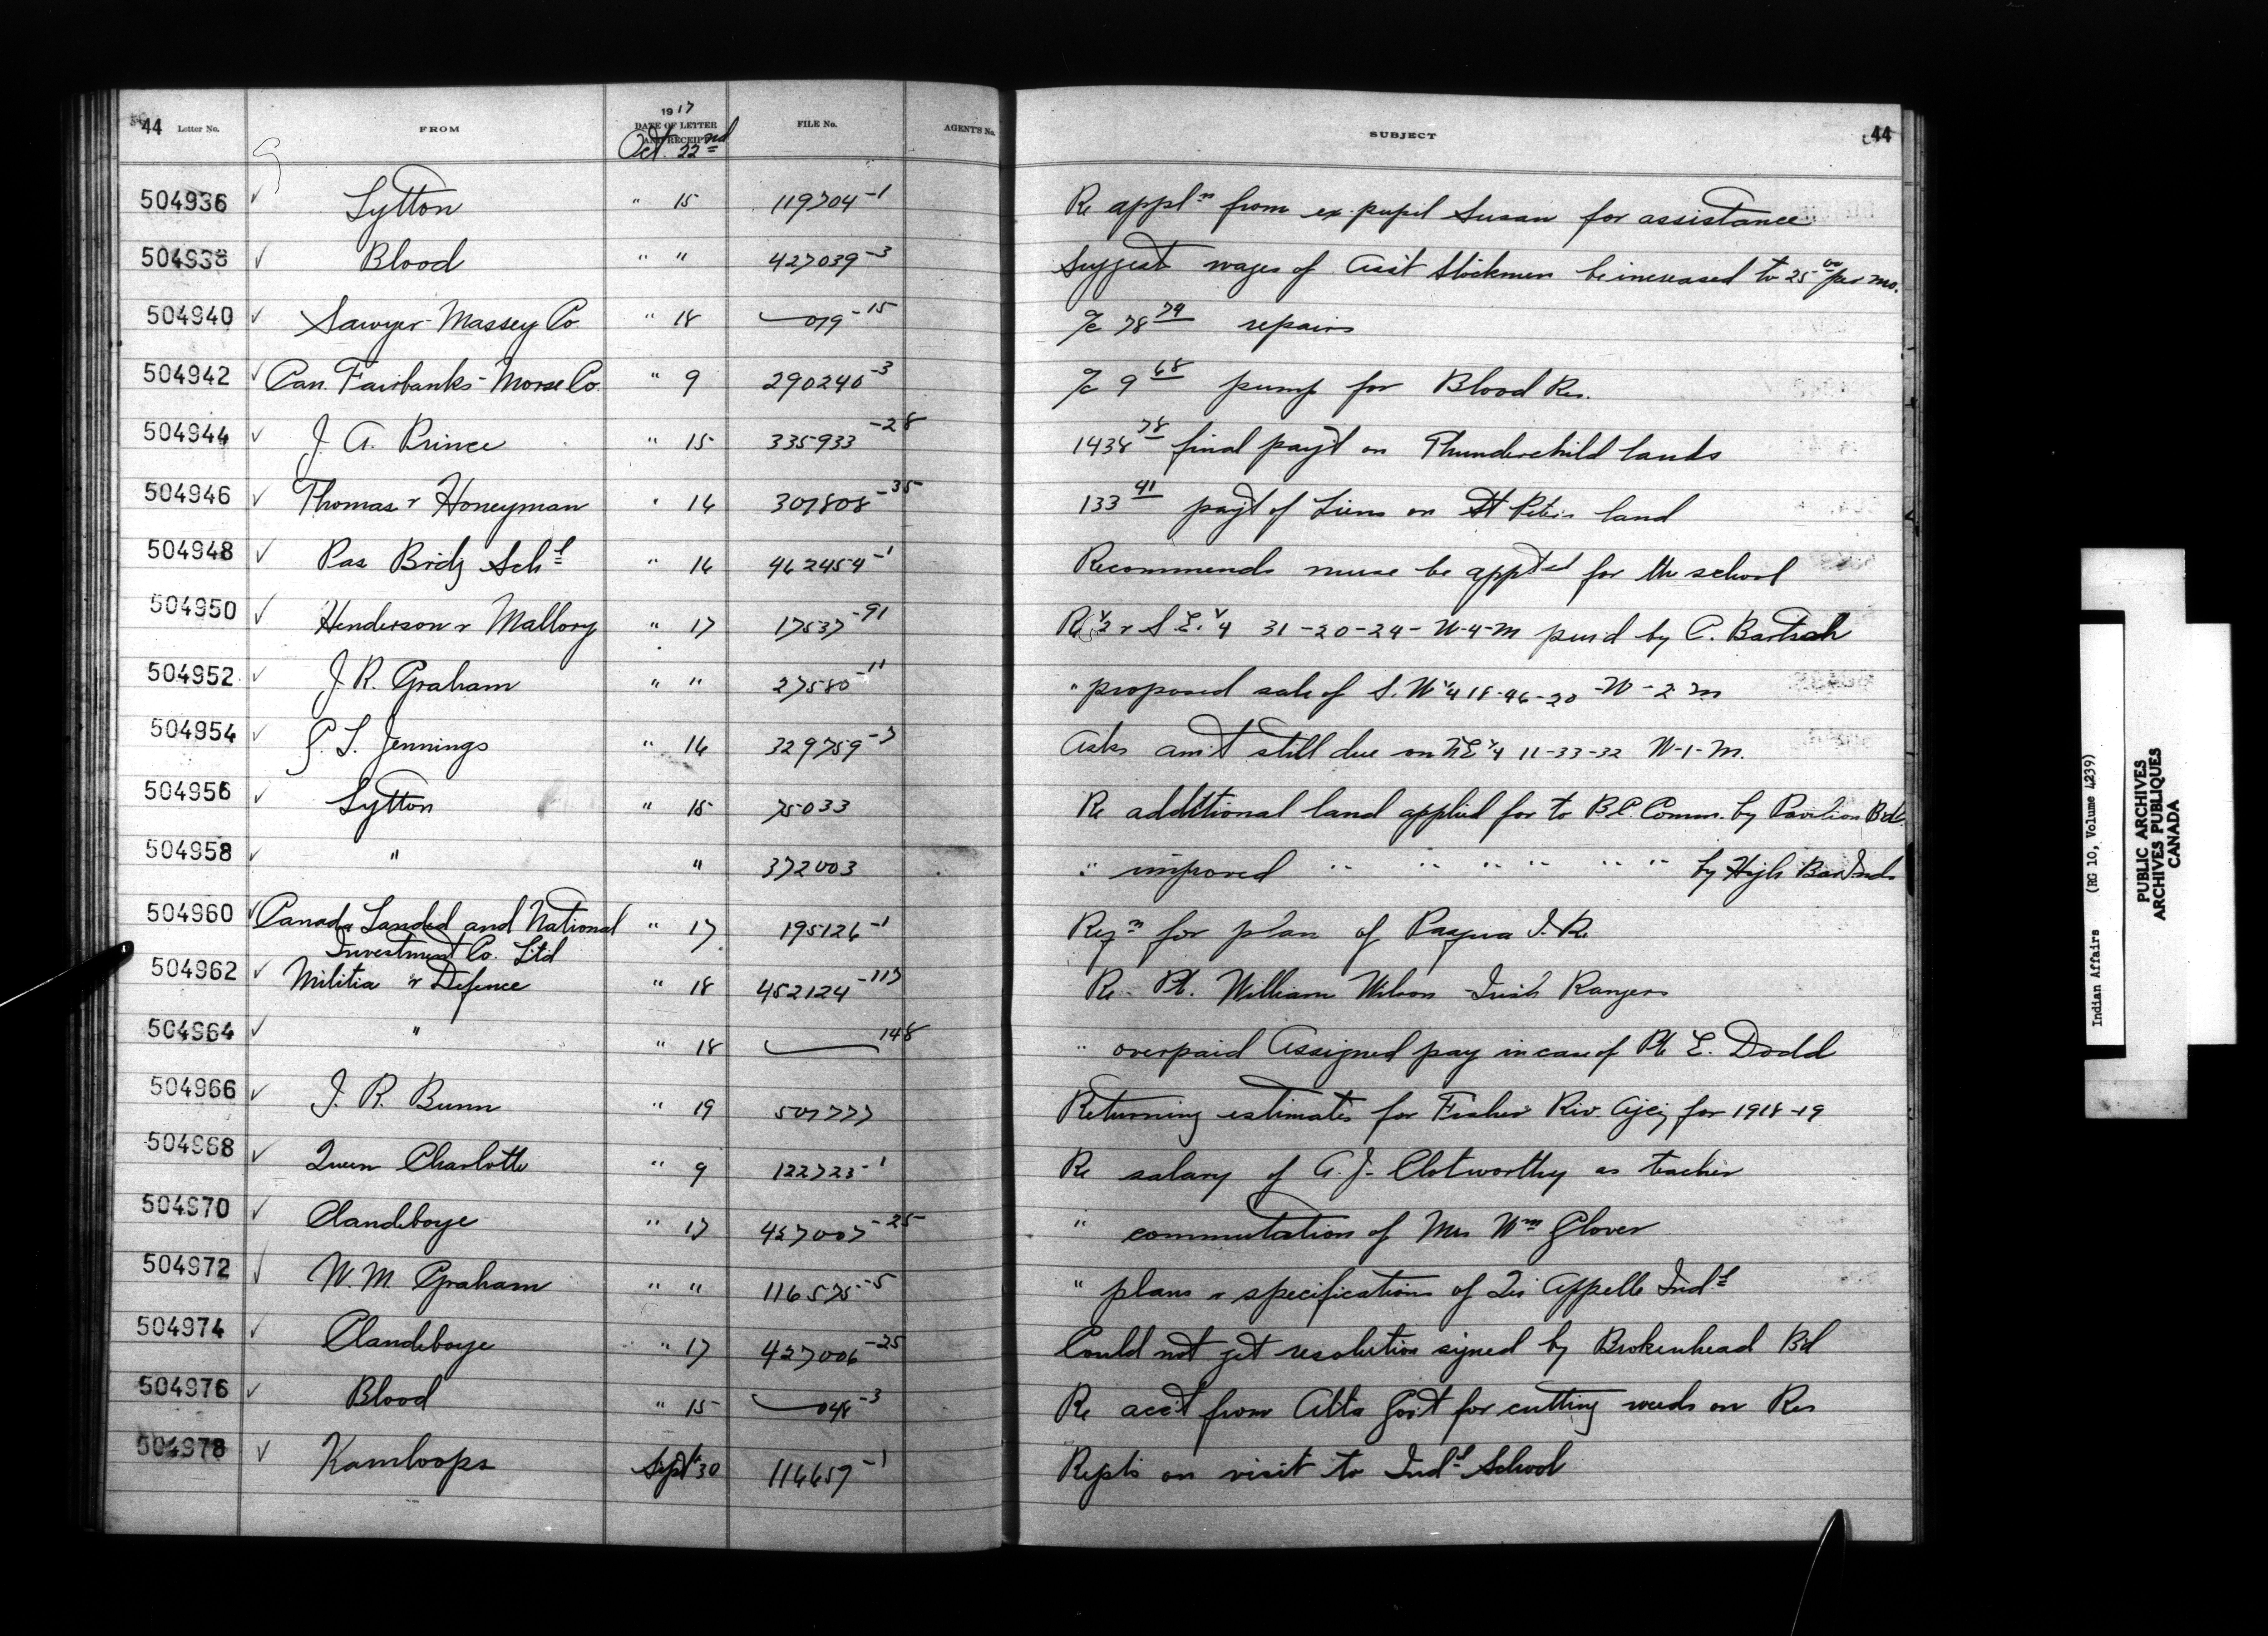 44 Letter No. FROM 1917 DATE OF LETTER AND RECEIPT FILE No. AGENT'S No. SUBJECT 44
Oct. 22nd
504936 ✓ Lytton " 15 119704-1 Re appln from ex. pupil Susan for assistance
504938 ✓ Blood " " 427039-3 Suggest wages of Asst Stockmen be increased to 25 00 per mo.
504940 ✓ Sawyer-Massey Co " 18 019-15 a/c 78 79 repairs
504942 ✓ Can. Fairbanks-Morse Co. " 9 290240-3 a/c 9 68 pump for Blood Res.
504944 ✓ J. A. Prince " 15 335933-28 1438 78 final pay't on Thunderchild lands
504946 ✓ Thomas & Honeyman " 16 307808-35 133 41 pay't of Liens on St Peter's land
504948 ✓ Pas Brdg Schl " 16 462454-1 Recommends nurse be appted for the school
504950 ✓ Henderson & Mallory " 17 17537-91 Re 1/2 & S.E. 1/4 31-20-24-W-4-M pur'd by C. Bartsch
504952 ✓ J. R. Graham " " 27580-11 " proposed sale of S.W 1/4 18-46-20-W-2 m
504954 ✓ P. L. Jennings " 16 329759-7 Asks am't still due on NE 1/4 11-33-32 W-1-M.
504956 ✓ Lytton " 15 75033 Re additional land applied for to B.C. Comm. by Pavilion Bd.
504958 ✓ " " 372003 " improved " " " " " " by High Bar Inds
504960 ✓ Canada Landed and National " 17 195126-1 Reqn for plan of Pasqua I.R.
Investment Co. Ltd
504962 ✓ Militia & Defence " 18 452124-117 Re. Pt. William Wilson Irish Rangers
504964 ✓ " " 18 148 " overpaid Assigned pay in case of Pte E. Dodd
504966 ✓ J. R. Bunn " 19 507777 Returning estimates for Fisher Riv. Agcy for 1918-19
504968 ✓ Queen Charlotte " 9 122723-1 Re salary of A. J. Clotworthy as teacher
504970 ✓ Clandeboye " 17 427007-25 " commutation of Mrs Wm Glover
504972 ✓ W. M. Graham " " 116575-5 " plans & specifications of Qu'Appelle Indl
504974 ✓ Clandeboye " 17 427006-25 Could not get resolution signed by Brokenhead Bd
504976 ✓ Blood " 15 048-3 Re acc't from Alta Gov't for cutting weeds on Res
504978 ✓ Kamloops Sept 30 116659-1 Repts on visit to Indl School
Indian Affairs (RG 10, Volume 4239)
PUBLIC ARCHIVES
ARCHIVES PUBLIQUES
CANADA